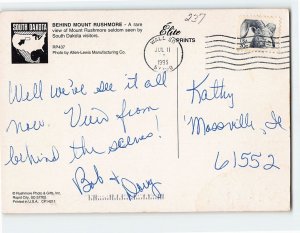 SOUTH DAKOTA
BEHIND MOUNT RUSHMORE - A rare
view of Mount Rushmore seldom seen by
South Dakota visitors.
RP407
Photo by Allen-Lewis Manufacturing Co.
237
Elite
PRINTS
WALL SD
JUL 11
1995
Well we've see it all
now. View from
behind the scenes!
Bob & Doug
Kathy
Mossville, Il
61552
© Rushmore Photo & Gifts, Inc.
Rapid City, SD 57701
Printed in U.S.A.